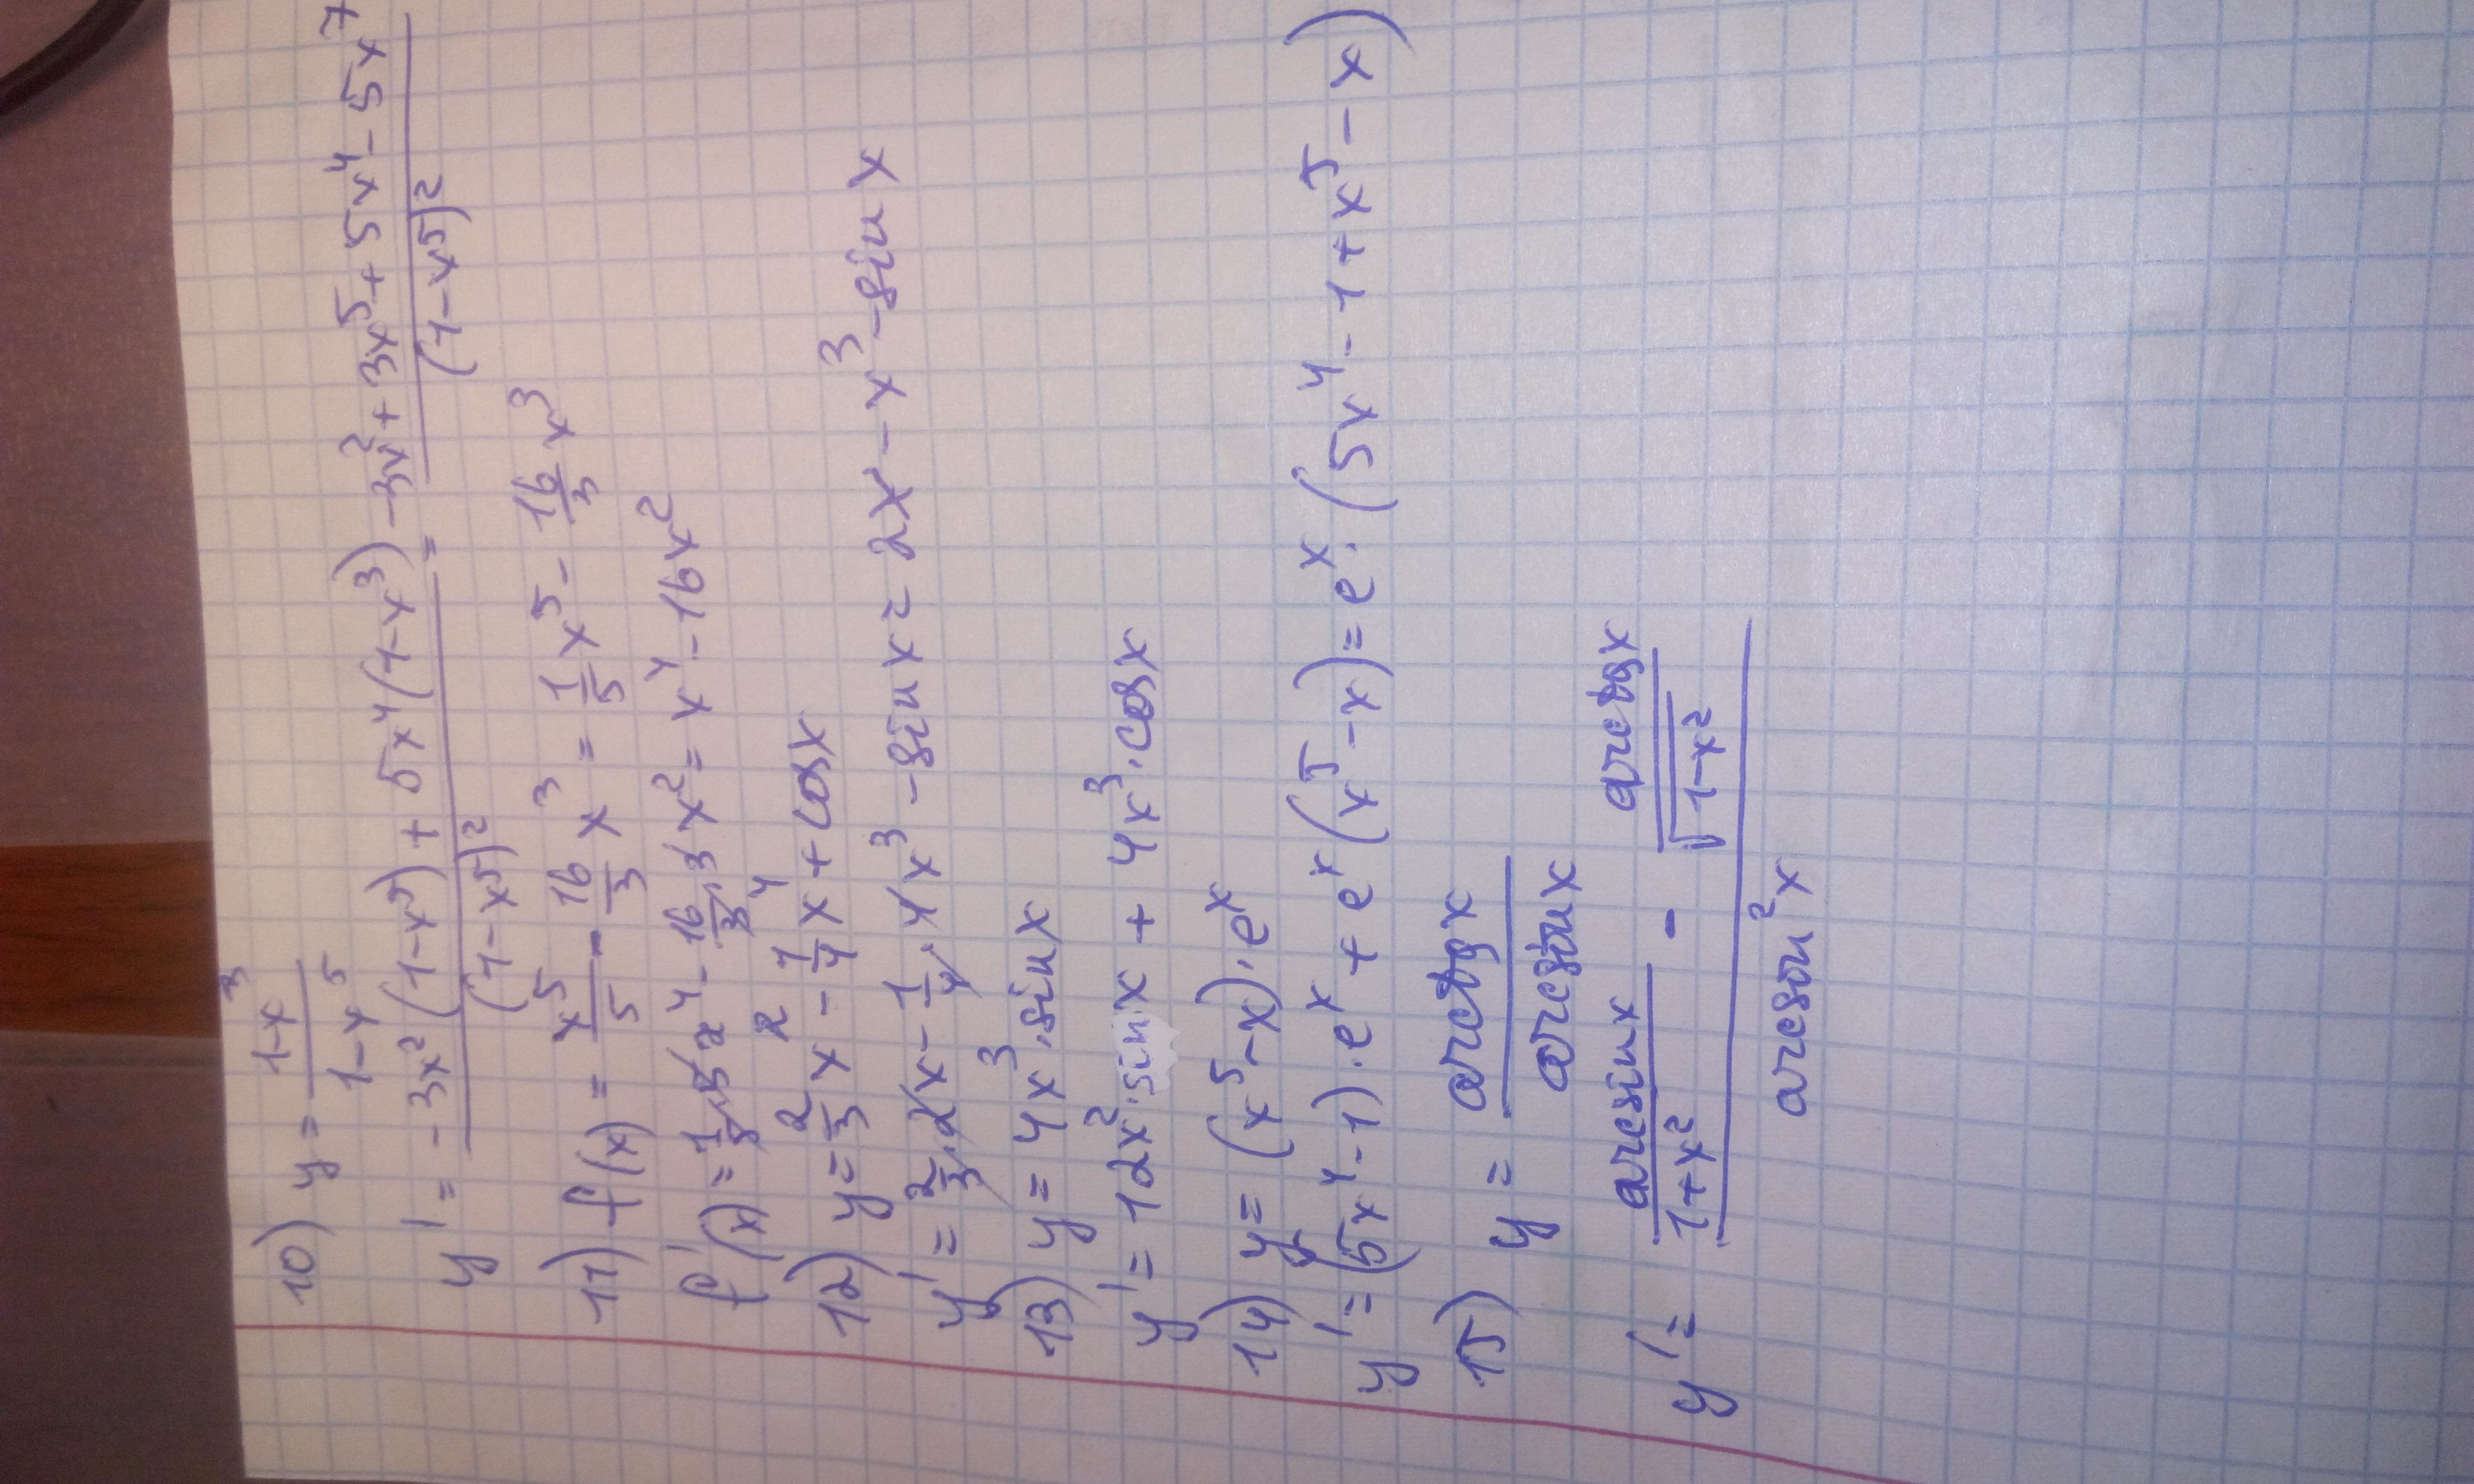 10) y = (1-x³)/(1-x⁵)
y' = (-3x²(1-x⁵) + 5x⁴(1-x³))/(1-x⁵)² = (-3x² + 3x⁵ + 5x⁴ - 5x⁷)/(1-x⁵)²
11) f(x) = x⁵/5 - 16/3 x³ = 1/5 x⁵ - 16/3 x³
f'(x) = 1/5 · 5x⁴ - 16/3 · 3x² = x⁴ - 16x²
12) y = 2/3 x² - 1/4 x⁴ + cosx
y' = 2/3 · 2x - 1/4 · 4x³ - sinx = 2x - x³ - sinx
13) y = 4x³ · sinx
y' = 12x² · sinx + 4x³ · cosx
14) y = (x⁵ - x) · eˣ
y' = (5x⁴ - 1) · eˣ + eˣ(x⁵ - x) = eˣ · (5x⁴ - 1 + x⁵ - x)
15) y = arctgx/arcsinx
y' = (arcsinx/(1+x²) - arctgx/√(1-x²))/arcsin²x